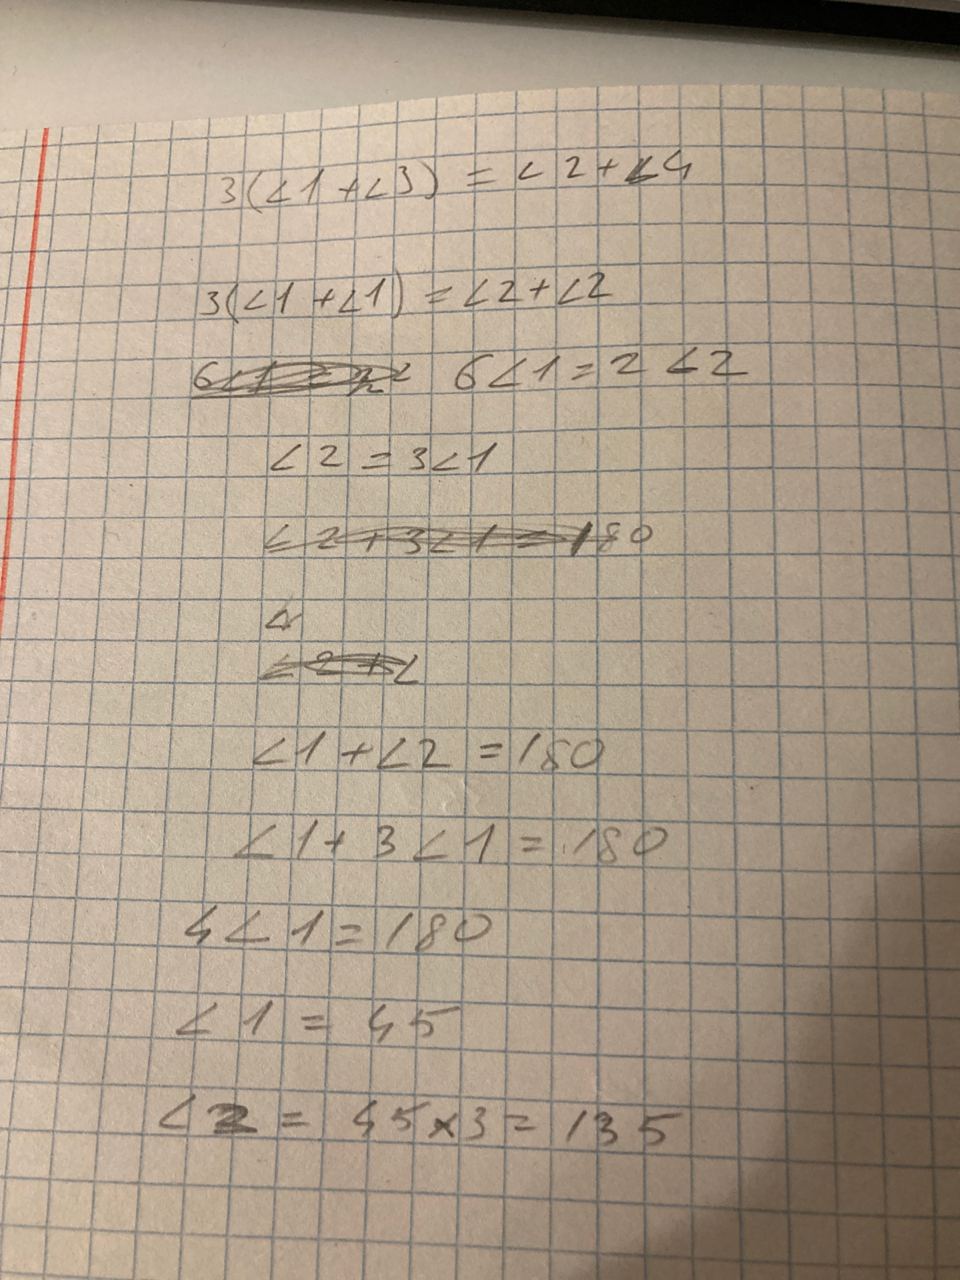 3(∠1+∠3) = ∠2+∠4
3(∠1+∠1) = ∠2+∠2
6∠1=2∠2
∠2=3∠1
∠2+3∠1=180
∠1+∠2=180
∠1+3∠1=180
4∠1=180
∠1=45
∠2=45×3=135